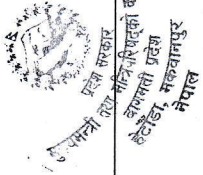 प्रदेश सरकार
मुख्यमन्त्री तथा मन्त्रिपरिषद्को
बागमती प्रदेश
हेटौंडा, मकवानपुर
नेपाल